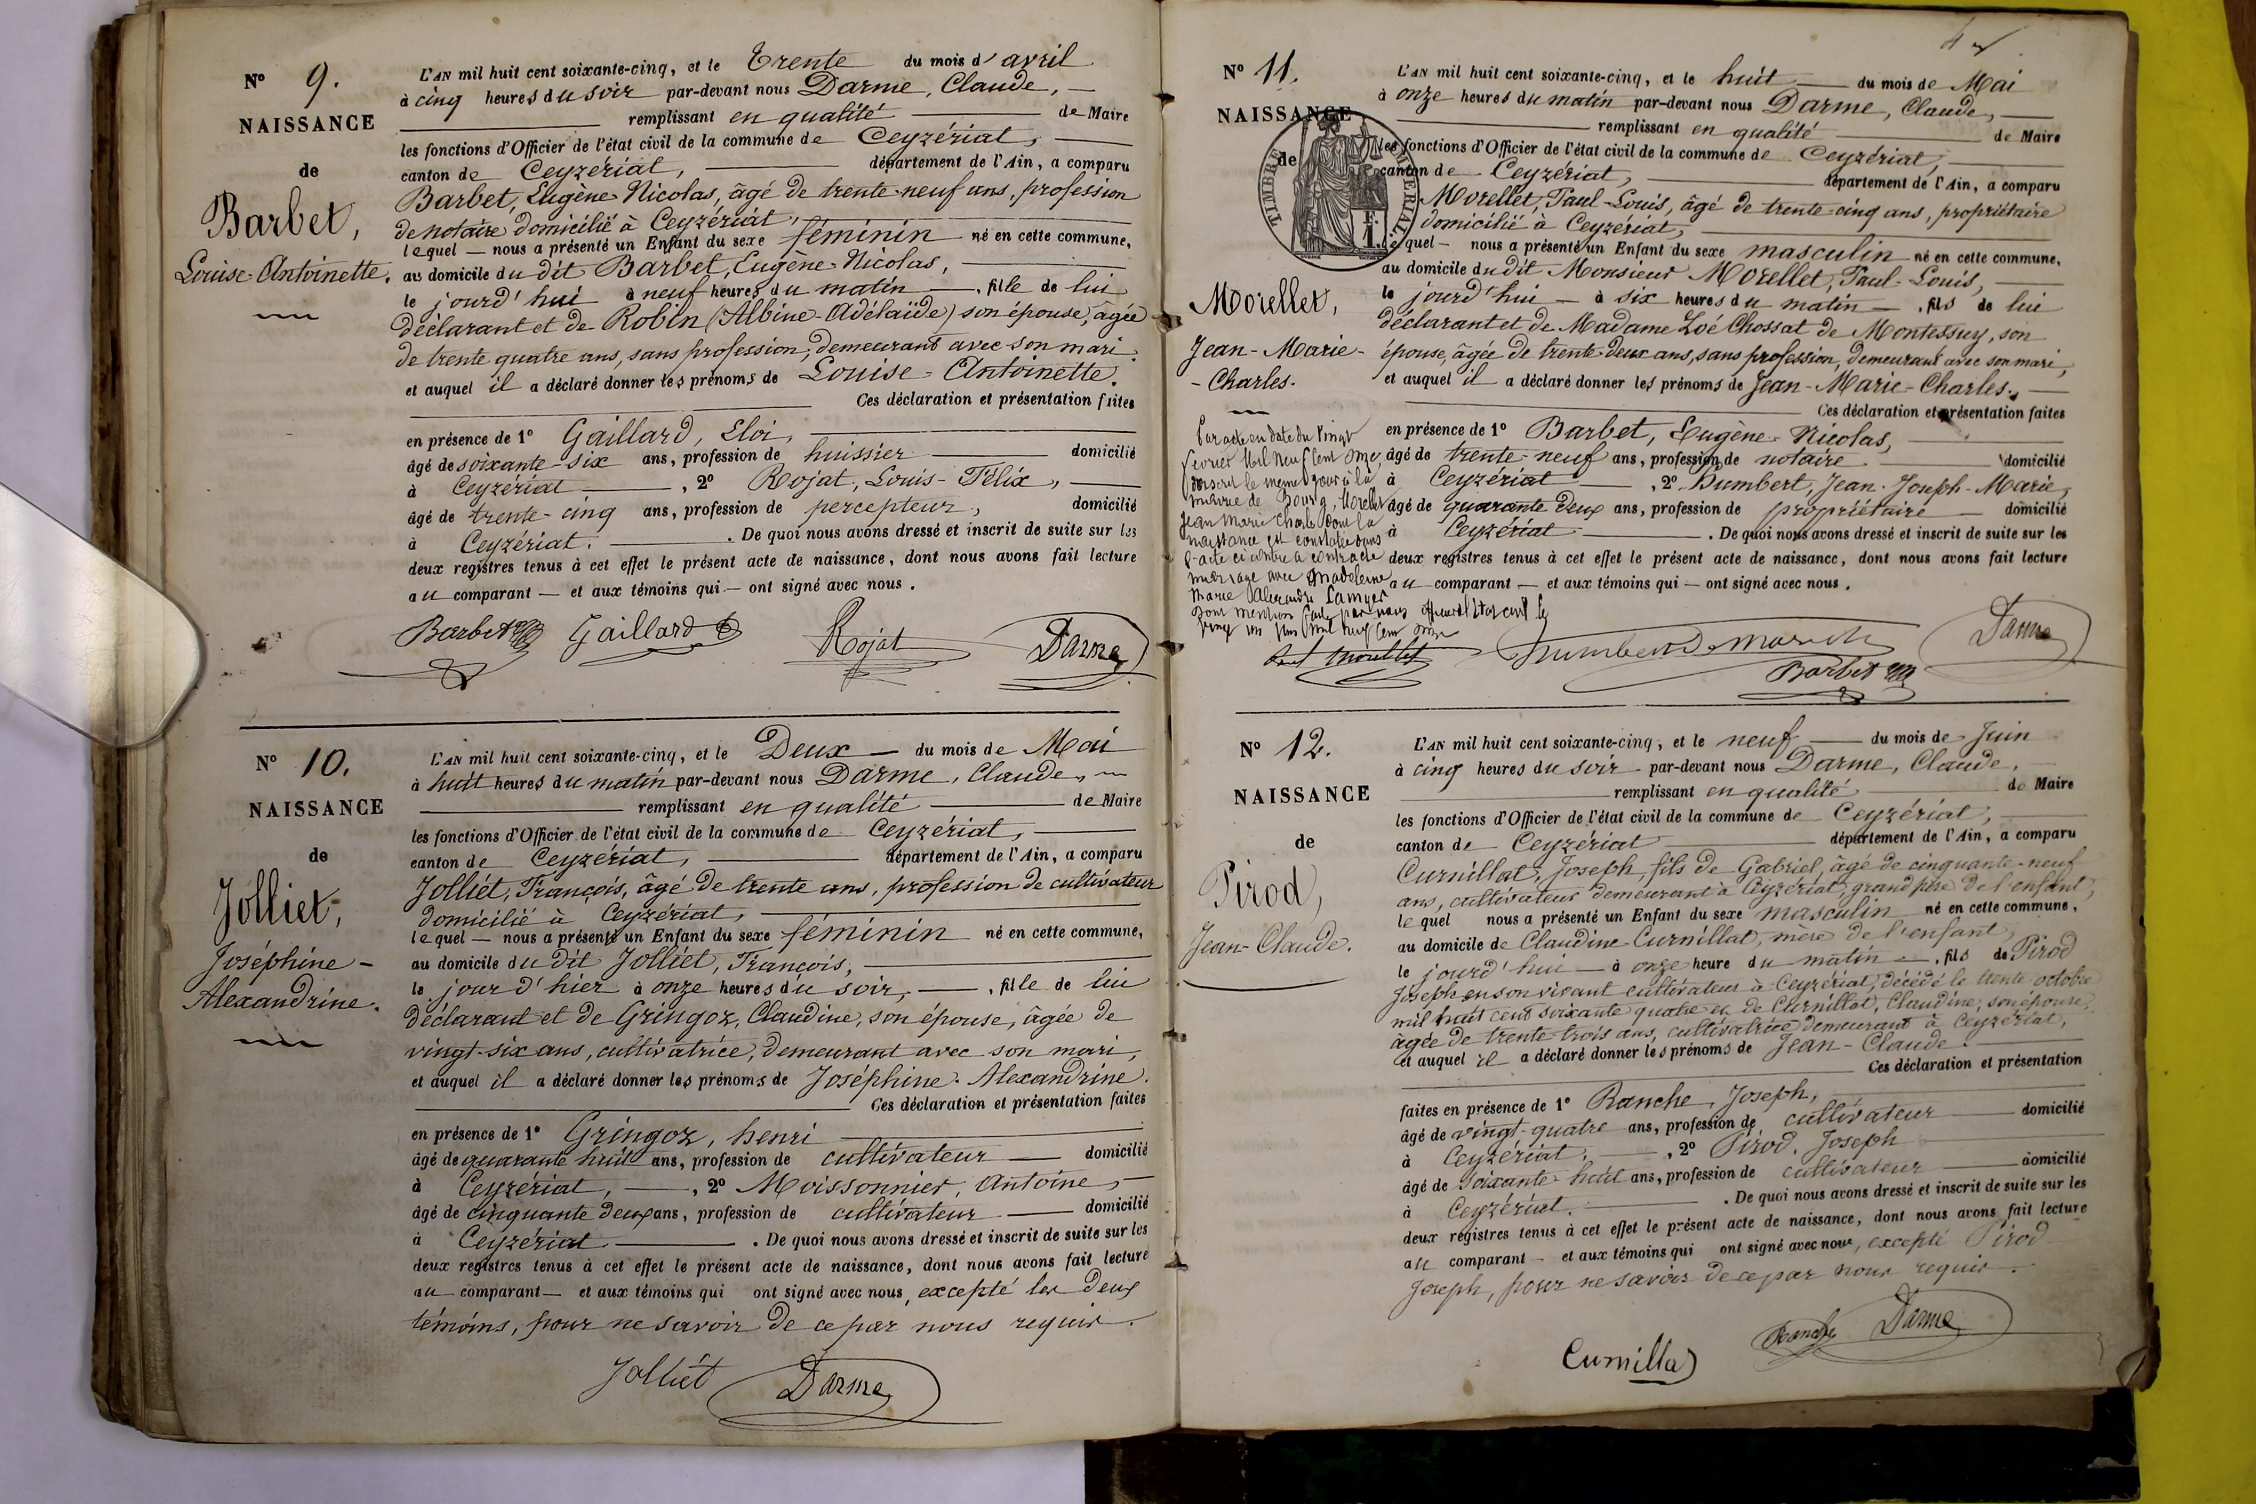 N° 9.
NAISSANCE
de
Barbet,
Louise-Antoinette.
L'AN mil huit cent soixante-cinq, et le Trente du mois d'avril
à cinq heures du soir par-devant nous Darme, Claude,
remplissant en qualité de Maire
les fonctions d'Officier de l'état civil de la commune de Ceyzériat,
canton de Ceyzériat, département de l'Ain, a comparu
Barbet, Eugène-Nicolas, âgé de trente-neuf ans, profession
de notaire domicilié à Ceyzériat,
lequel — nous a présenté un Enfant du sexe féminin né en cette commune,
au domicile du dit Barbet, Eugène-Nicolas,
le jourd'hui à neuf heures du matin —, fille de lui
déclarant et de Robin (Albine-Adélaïde) son épouse, âgée
de trente quatre ans, sans profession, demeurant avec son mari.
et auquel il a déclaré donner les prénoms de Louise-Antoinette.
Ces déclaration et présentation faites
en présence de 1° Gaillard, Eloi,
âgé de soixante-six ans, profession de huissier domicilié
à Ceyzériat, 2° Rojat, Louis-Félix,
âgé de trente-cinq ans, profession de percepteur, domicilié
à Ceyzériat. De quoi nous avons dressé et inscrit de suite sur les
deux registres tenus à cet effet le présent acte de naissance, dont nous avons fait lecture
au comparant — et aux témoins qui — ont signé avec nous.
Barbet Gaillard Rojat Darme
N° 10.
NAISSANCE
de
Jolliet,
Joséphine-
Alexandrine.
L'AN mil huit cent soixante-cinq, et le Deux — du mois de Mai
à huit heures du matin par-devant nous Darme, Claude,
remplissant en qualité de Maire
les fonctions d'Officier de l'état civil de la commune de Ceyzériat,
canton de Ceyzériat, département de l'Ain, a comparu
Jolliet, François, âgé de trente ans, profession de cultivateur
domicilié à Ceyzériat,
lequel — nous a présenté un Enfant du sexe féminin né en cette commune,
au domicile du dit Jolliet, François,
le jour d'hier à onze heures du soir, —, fille de lui
déclarant et de Gringoz, Claudine, son épouse, âgée de
vingt-six ans, cultivatrice, demeurant avec son mari,
et auquel il a déclaré donner les prénoms de Joséphine-Alexandrine.
Ces déclaration et présentation faites
en présence de 1° Gringoz, henri
âgé de quarante huit ans, profession de cultivateur — domicilié
à Ceyzériat, —, 2° Moissonnier, Antoine,
âgé de cinquante deux ans, profession de cultivateur — domicilié
à Ceyzériat. De quoi nous avons dressé et inscrit de suite sur les
deux registres tenus à cet effet le présent acte de naissance, dont nous avons fait lecture
au comparant — et aux témoins qui ont signé avec nous, excepté les deux
témoins, pour ne savoir de ce par nous requis.
Jolliet Darme
4
N° 11.
NAISSANCE
de
TIMBRE IMPÉRIAL
1 F.
Morellet,
Jean-Marie-
-Charles.
L'AN mil huit cent soixante-cinq, et le huit — du mois de Mai
à onze heures du matin par-devant nous Darme, Claude,
remplissant en qualité de Maire
les fonctions d'Officier de l'état civil de la commune de Ceyzériat,
canton de Ceyzériat, département de l'Ain, a comparu
Morellet, Paul-Louis, âgé de trente-cinq ans, propriétaire
domicilié à Ceyzériat,
lequel — nous a présenté un Enfant du sexe masculin né en cette commune,
au domicile du dit Monsieur Morellet, Paul-Louis,
le jourd'hui — à six heures du matin —, fils de lui
déclarant et de Madame Zoé Chossat de Montessuy, son
épouse, âgée de trente-deux ans, sans profession, demeurant avec son mari,
et auquel il a déclaré donner les prénoms de Jean-Marie-Charles.
Ces déclaration et présentation faites
en présence de 1° Barbet, Eugène-Nicolas,
âgé de trente-neuf ans, profession de notaire domicilié
à Ceyzériat, 2° Humbert, Jean-Joseph-Marie,
âgé de quarante deux ans, profession de propriétaire — domicilié
à Ceyzériat. De quoi nous avons dressé et inscrit de suite sur les
deux registres tenus à cet effet le présent acte de naissance, dont nous avons fait lecture
au comparant — et aux témoins qui — ont signé avec nous.
Par acte en date du vingt
février Mil neuf cent onze,
dressé le même jour à la
mairie de Bourg, Morellet
Jean Marie Charles dont la
naissance est constatée dans
l'acte ci contre a contracté
mariage avec Madeleine
Marie Alexandre
Dont mention faite par nous officier d'Etat civil le
mil neuf cent onze
Paul Morellet Humbert Darme
Barbet
N° 12.
NAISSANCE
de
Pirod,
Jean-Claude.
L'AN mil huit cent soixante-cinq, et le neuf — du mois de Juin
à cinq heures du soir par-devant nous Darme, Claude,
remplissant en qualité de Maire
les fonctions d'Officier de l'état civil de la commune de Ceyzériat,
canton de Ceyzériat département de l'Ain, a comparu
Curnillat, Joseph, fils de Gabriel, âgé de cinquante-neuf
ans, cultivateur demeurant à Ceyzériat, grand père de l'enfant,
lequel nous a présenté un Enfant du sexe masculin né en cette commune,
au domicile de Claudine Curnillat, mère de l'enfant,
le jourd'hui — à onze heure du matin —, fils de Pirod
Joseph en son vivant cultivateur à Ceyzériat, décédé le trente octobre
mil huit cent soixante quatre et de Curnillat, Claudine, son épouse,
âgée de trente trois ans, cultivatrice demeurant à Ceyzériat,
et auquel il a déclaré donner les prénoms de Jean-Claude.
Ces déclaration et présentation
faites en présence de 1° Ranche, Joseph,
âgé de vingt-quatre ans, profession de cultivateur domicilié
à Ceyzériat, 2° Pirod, Joseph
âgé de soixante-huit ans, profession de cultivateur domicilié
à Ceyzériat. De quoi nous avons dressé et inscrit de suite sur les
deux registres tenus à cet effet le présent acte de naissance, dont nous avons fait lecture
au comparant — et aux témoins qui ont signé avec nous, excepté Pirod
Joseph, pour ne savoir de ce par nous requis.
Ranche Darme
Curnillat